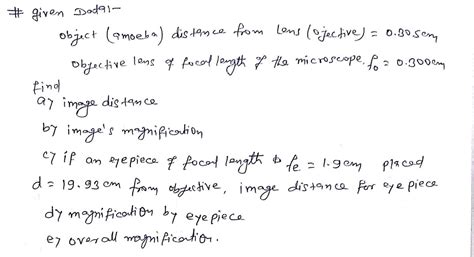 # given Data:-
object (amoeba) distance from lens (ojective) = 0.305cm
objective lens of focal length of the microscope. fo = 0.300cm
find
a) image distance
b) image's magnification
c) if an eyepiece of focal length fe = 1.9cm placed
d = 19.93 cm from objective, image distance for eye piece
d) magnification by eyepiece
e) overall magnification.